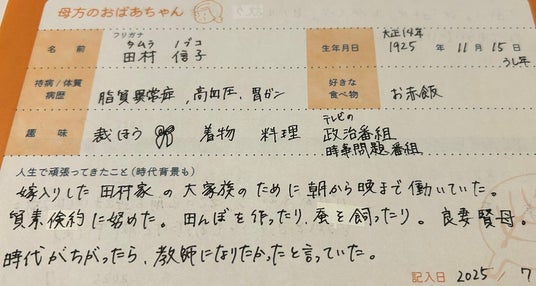 母方のおばあちゃん
フリガナ
タムラ ノブコ
名前 田村 信子
生年月日 大正14年
1925年 11月 15日
うし年
持病/体質
病歴
脂質異常症、高血圧、胃ガン
好きな
食べ物
お赤飯
趣味 裁ほう 着物 料理 テレビの
政治番組
時事問題番組
人生で頑張ってきたこと(時代背景も)
嫁入りした田村家の大家族のために朝から晩まで働いていた。
質素倹約に努めた。田んぼを作ったり、蚕を飼ったり。良妻賢母。
時代がちがったら、教師になりたかったと言っていた。
記入日 2025/7